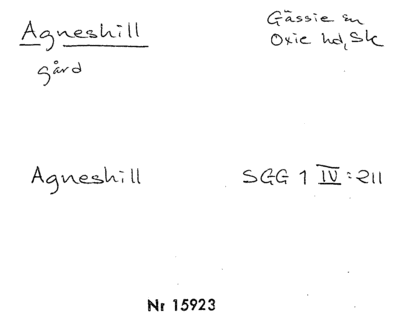 Agneshill
Gässie sn
Oxie hd, Sk
gård
Agneshill
SGG 1 IV:211
Nr 15923